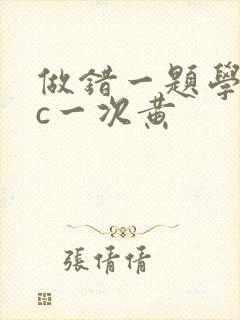 做錯一題學
c一次黃
張倩倩